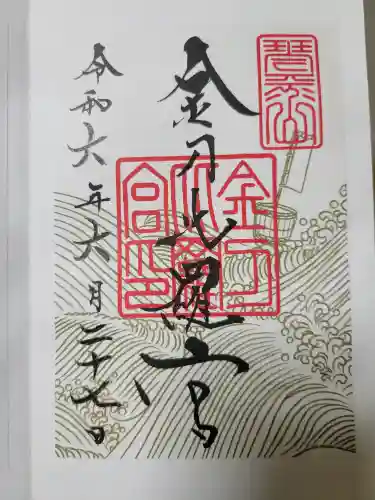 琴平山
金刀比羅宮
金刀
比羅
宮印
令和六年六月二十七日